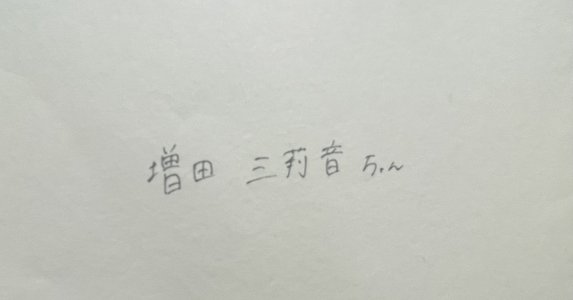 増田 三莉音ちゃん